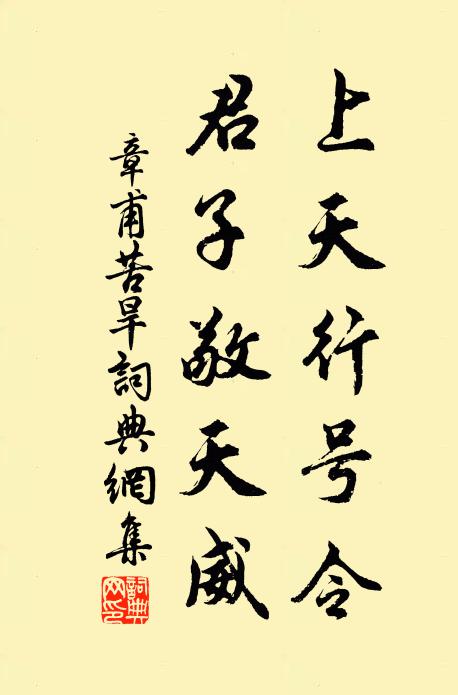 上天行号令
君子敬天威
章甫苦旱詞典網集
詞典网印